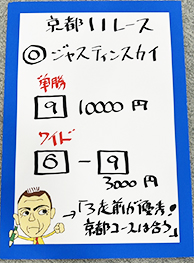 京都11レース
◎ジャスティンスカイ
単勝
9 10000円
ワイド
6-9
3000円
→「3走前が優秀!
京都コースは合う」